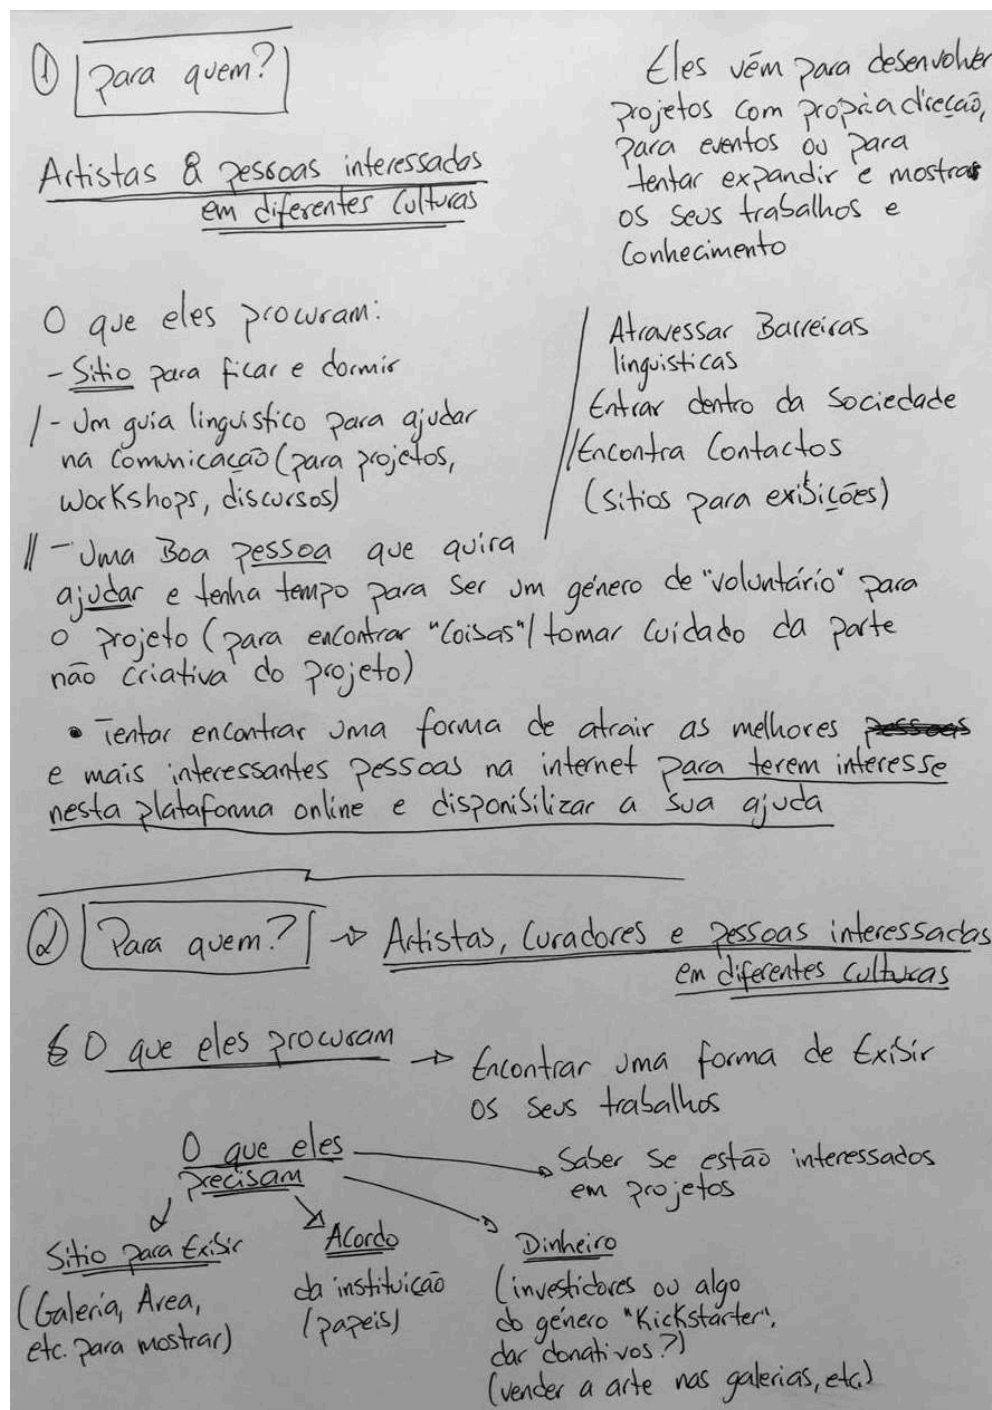 ① Para quem?
Artistas & pessoas interessadas
em diferentes Culturas
Eles vêm para desenvolver
projetos com própria direção,
para eventos ou para
tentar expandir e mostrar
os seus trabalhos e
Conhecimento
O que eles procuram:
- Sitio para ficar e dormir
/ - Um guia linguistico para ajudar
na Comunicação (para projetos,
workshops, discursos)
Atravessar Barreiras
linguisticas
Entrar dentro da Sociedade
// Encontra Contactos
(sitios para exibições)
// - Uma Boa pessoa que quira
ajudar e tenha tempo para ser um género de "voluntário" para
o projeto (para encontrar "Coisas"/tomar Cuidado da parte
não criativa do projeto)
• Tentar encontrar uma forma de atrair as melhores pessoas
e mais interessantes pessoas na internet para terem interesse
nesta plataforma online e disponibilizar a sua ajuda
② Para quem? → Artistas, Curadores e pessoas interessadas
em diferentes culturas
O que eles procuram → Encontrar uma forma de Exibir
os seus trabalhos
O que eles
precisam
Saber se estão interessados
em projetos
Sitio para Exibir
(Galeria, Area,
etc. para mostrar)
Acordo
da instituição
(papeis)
Dinheiro
(investidores ou algo
do género "Kickstarter",
dar donativos?)
(vender a arte nas galerias, etc.)